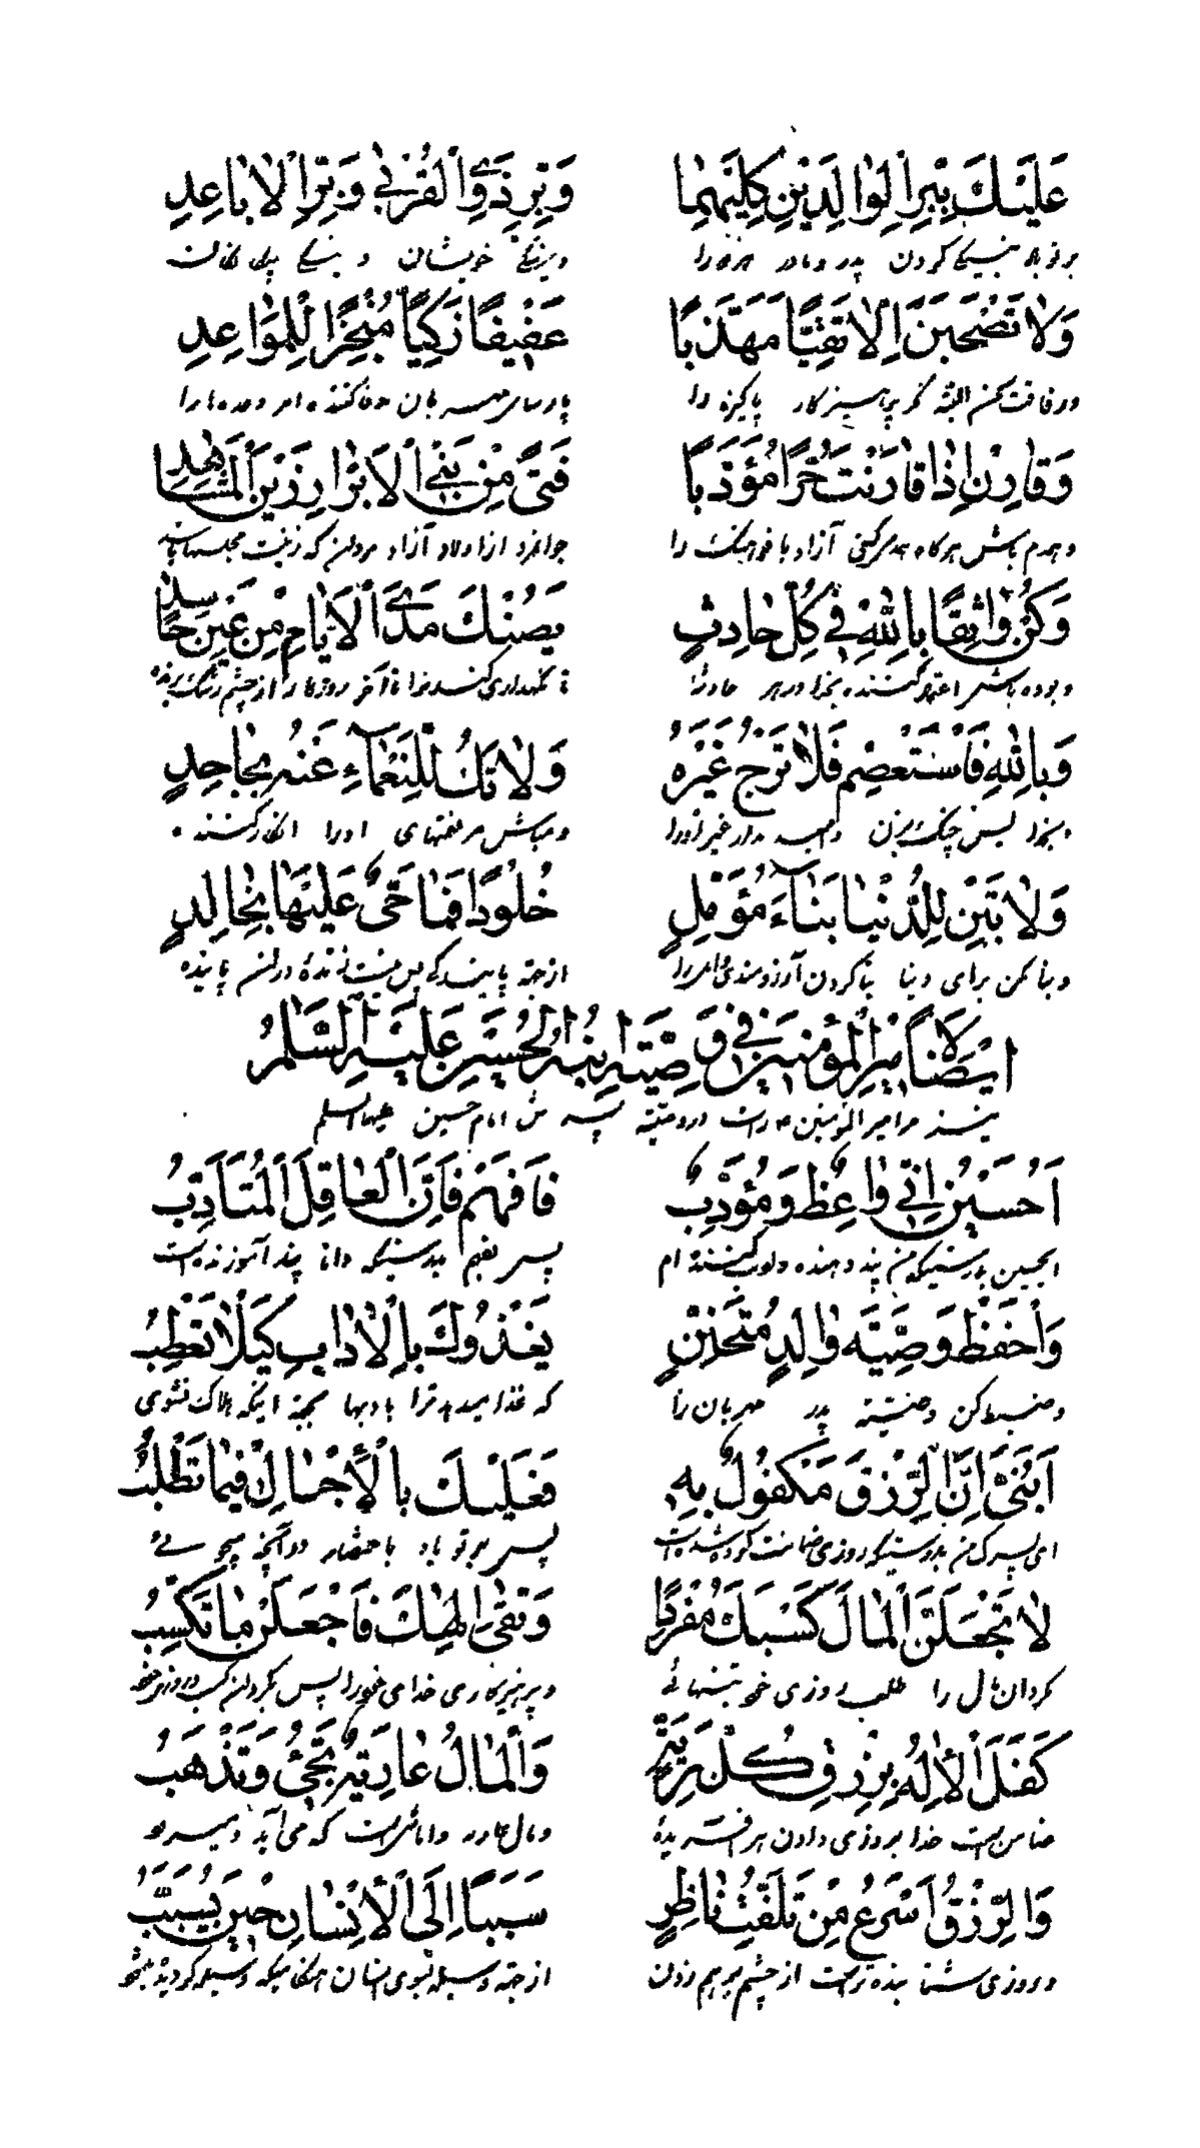 عَلَيْكَ بِبِرِّ الْوٰالِدَيْنِ كِلَيْهِمٰا وَبِرِّ ذَوِي الْقُرْبىٰ وَبِرِّ الْاَبٰاعِدِ
بر تو باد به نیکی کردن پدر و مادر هر دو را و به نیکی خویشان و به نیکی
وَلٰا تَصْحَبَنَّ اِلّٰا تَقِيًّا مُهَذَّبًا عَفِيفًا زَكِيًّا مُنْجِزًا لِلْمَوٰاعِدِ
و رفاقت مکن البته مگر پرهیزکار پاکیزه را پارسای وفا کننده مر وعده‌ها را
وَقٰارِنْ اِذٰا قٰارَنْتَ حُرًّا مُؤَدَّبًا فَتًى مِنْ بَنِي الْاَبْرٰارِ زَيْنَ الْمَشٰاهِدِ
و همدم باش هرگاه همدم کنی آزاد با فرهنگ را جوانمرد از اولاد آزاد مردان که زینت مجلسها باشد
وَكُنْ وٰاثِقًا بِاللّٰهِ فِي كُلِّ حٰادِثٍ يَصُنْكَ مَدَى الْاَيّٰامِ مِنْ عَيْنِ حٰاسِدٍ
و بوده باش اعتماد کننده بخدا در هر حادثه تا نگهداری کند ترا تا آخر روزگار از چشم رشک برنده
وَبِاللّٰهِ فَاسْتَعْصِمْ فَلٰا تَرْجُ غَيْرَهُ وَلٰا تَكُ لِلنَّعْمٰاءِ عَنْهُ بِجٰاحِدٍ
و بخدا پس چنگ بزن و امید مدار غیر او را و مباش مر نعمتهای او را انکار کننده
وَلٰا تَبْنِ لِلدُّنْيٰا بَنٰاءَ مُؤَمِّلٍ خُلُودًا فَمٰا حَيٌّ عَلَيْهٰا بِخٰالِدٍ
و بنا مکن برای دنیا بنا کردن آرزومندی از جهة پایندگی پس نیست زنده در آن پاینده
اَيْضًا لِاَمِيرِ الْمُؤْمِنِينَ فِي وَصِيَّتِهِ اِبْنَهُ الْحُسَيْنَ عَلَيْهِ السَّلٰامُ
نیز مر امیر المؤمنین راست در وصیّة پسرش امام حسین علیهما السلم
اَحُسَيْنُ اِنِّي وٰاعِظٌ وَمُؤَدِّبٌ فَافْهَمْ فَاِنَّ الْعٰاقِلَ الْمُتَاَدِّبُ
ای حسین بدرستیکه من پند دهنده و ادب کننده ام پس بفهم بدرستیکه دانا پند آموزنده است
وَاحْفَظْ وَصِيَّةَ وٰالِدٍ مُتَحَنِّنٍ يَغْذُوكَ بِالْاٰدٰابِ كَيْلٰا تَعْطَبُ
و ضبط کن وصیّة پدر مهربان را که غذا میدهد ترا بادبها بجهة اینکه هلاک نشوی
اَبُنَيَّ اِنَّ الرِّزْقَ مَكْفُولٌ بِهِ فَعَلَيْكَ بِالْاَجْمٰالِ فِيمٰا تَطْلُبُ
ای پسرک من بدرستیکه روزی ضمانت کرده شده است پس بر تو باد باختصار در آنچه میجوئی
لٰا تَجْعَلَنَّ الْمٰالَ كَسْبَكَ مُفْرَدًا وَتُقىٰ اِلٰهِكَ فَاجْعَلَنْ مٰا تَكْسِبُ
مگردان مال را طلب روزی خود بتنهائی و پرهیزکاری خدای خود را پس بگردان کسب و روزی خود
كَفَلَ الْاِلٰهُ بِرِزْقِ كُلِّ بَرِيَّةٍ وَالْمٰالُ عٰارِيَةٌ تَجِيءُ وَتَذْهَبُ
ضامن است خدا بروزی دادن هر آفریده و مال عاریه و امانت است که می آید و میرود
وَالرِّزْقُ اَسْرَعُ مِنْ تَلَفُّتِ نٰاظِرٍ سَبَبًا اِلَى الْاِنْسٰانِ حِينَ يُسَبَّبُ
و روزی شتابنده تر است از چشم بر هم زدن از جهة وسیله بسوی انسان هنگامیکه وسیله گردیده میشود